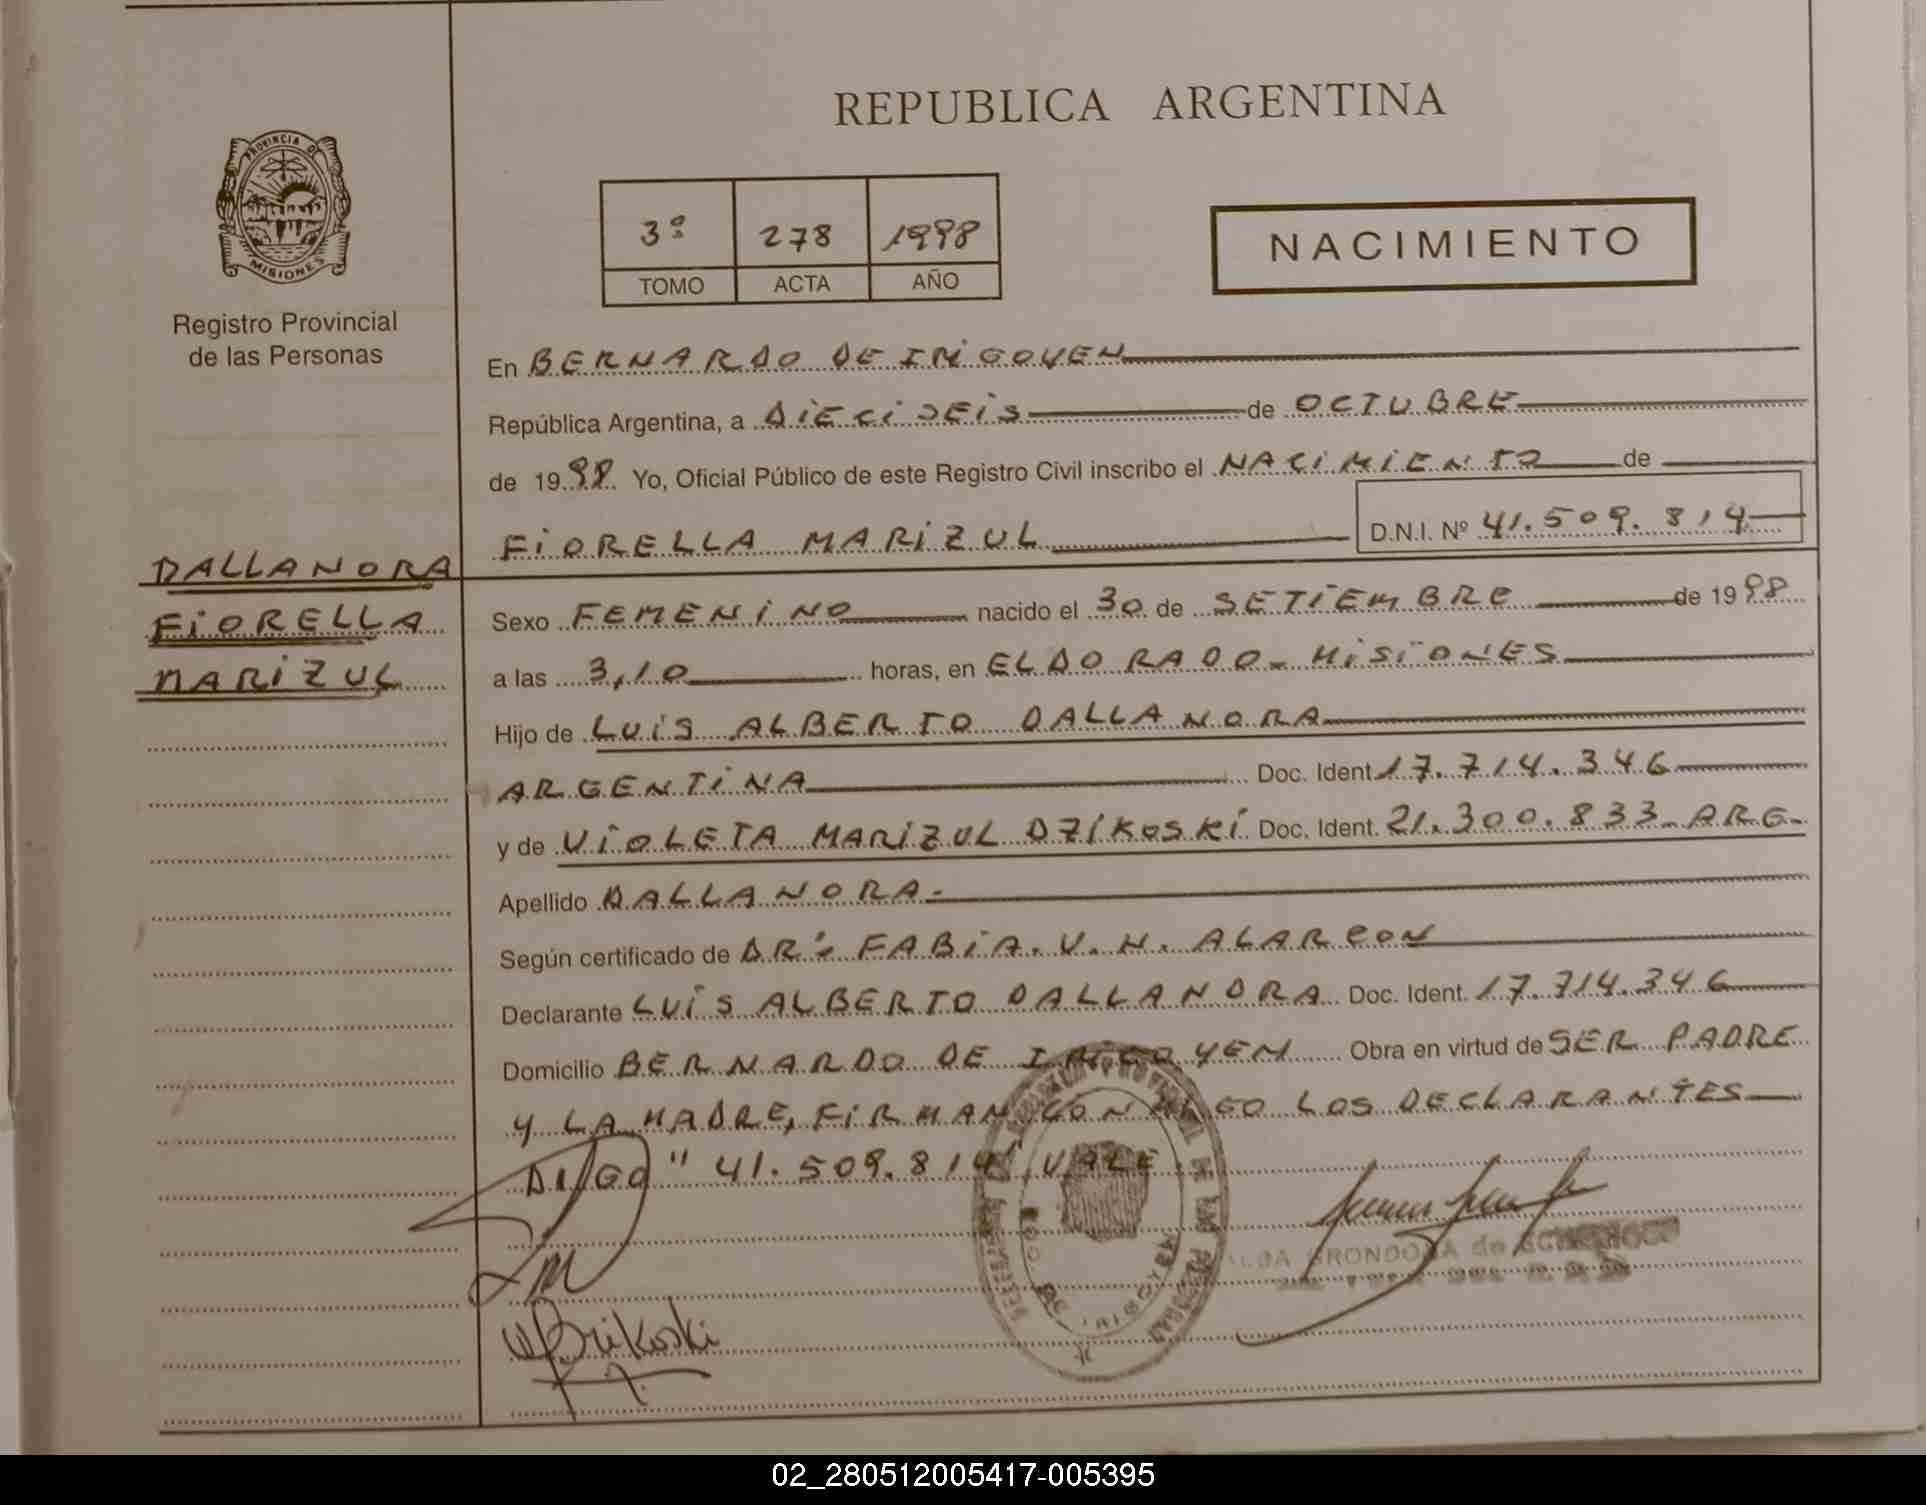 REPUBLICA ARGENTINA
PROVINCIA DE
MISIONES
Registro Provincial
de las Personas
3º 278 1998
TOMO ACTA AÑO
NACIMIENTO
En BERNARDO DE IRIGOYEN
República Argentina, a DIECISEIS de OCTUBRE
de 1998 Yo, Oficial Público de este Registro Civil inscribo el NACIMIENTO de
FIORELLA MARIZUL D.N.I. Nº 41.509.814
DALLANORA
FIORELLA
MARIZUL
Sexo FEMENINO nacido el 30 de SETIEMBRE de 1998
a las 3,10 horas, en ELDORADO - MISIONES
Hijo de LUIS ALBERTO DALLANORA
ARGENTINA Doc. Ident 17.714.346
y de VIOLETA MARIZUL DZIKOSKI Doc. Ident. 21.300.833 - ARG.
Apellido DALLANORA.-
Según certificado de DRA. FABIA. V. N. ALARCON
Declarante LUIS ALBERTO DALLANORA Doc. Ident. 17.714.346
Domicilio BERNARDO DE IRIGOYEN Obra en virtud de SER PADRE
Y LA MADRE, FIRMAN CONMIGO LOS DECLARANTES
DIGO "41.509.814" VALE
GRONDONA de
02_280512005417-005395